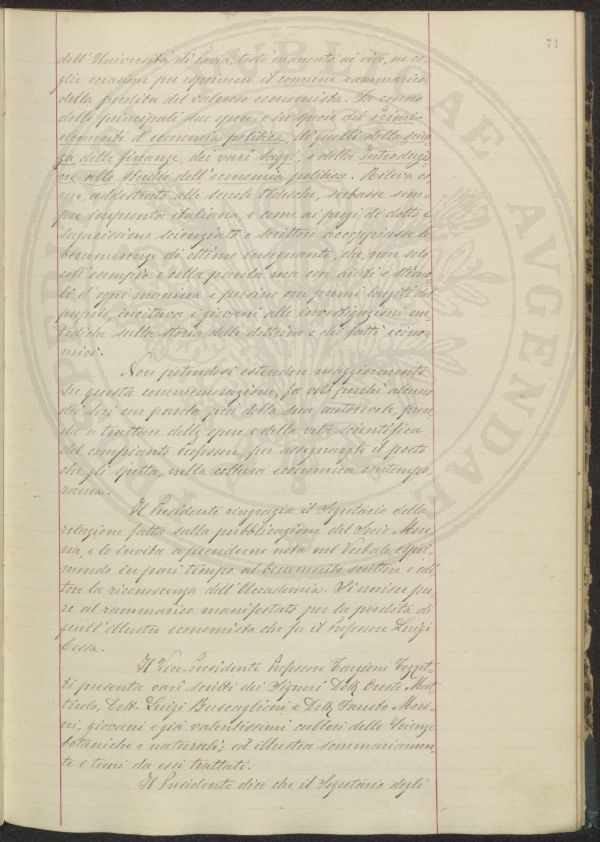 71
dell'Università di Pavia, testè mancato ai vivi, ne co-
glie occasione per esprimere il comune rammarico
della perdita del valoroso economista. Fa cenno
delle principali sue opere, e in specie dei Primi
elementi d'economia politica, di quelli della scien-
za delle finanze, dei varî Saggi, e della Introduzio-
ne allo studio dell'economia politica. Rileva co-
me, addestrato alle scuole tedesche, serbasse sem-
pre impronta italiana, e come ai pregi di dotto e
sagacissimo scienziato e scrittore accoppiasse le
benemerenze di ottimo insegnante, che, non solo
coll'esempio e colla parola ma con aiuti e stimo-
li d'ogni maniera e persino con premi largiti del
proprio, incitava i giovani alle investigazioni me-
todiche sulla storia delle dottrine e dei fatti econo-
mici.
Non potendosi estendere maggiormente
su questa commemorazione, fa voti perchè alcuno
dei Soci con parola più della sua autorevole, pren-
da a trattare delle opere e della vita scientifica
del compianto Professore, per assegnargli il posto
che gli spetta, nella coltura economica contempo-
ranea.
Il Presidente ringrazia il Segretario della
relazione fatta sulla pubblicazione del Socio More-
na, e lo invita a prenderne nota nel Verbale, espri-
mendo in pari tempo al benemerito scrittore e edi-
tore la riconoscenza dell'Accademia. Si unisce pu-
re al rammarico manifestato per la perdita di
quell'illustre economista che fu il Professore Luigi
Cossa.
Il Vice-Presidente Professore Targioni Tozzet-
ti presenta varî scritti dei Signori Dott. Oreste Mat-
tirolo, Dott. Luigi Buscaglioni e Dott. Fausto Mori-
ni, giovani e già valentissimi cultori delle Scienze
botaniche e naturali; ed illustra sommariamen-
te i temi da essi trattati.
Il Presidente dice che il Segretario degli
PUBLICAE
AVGENDAE